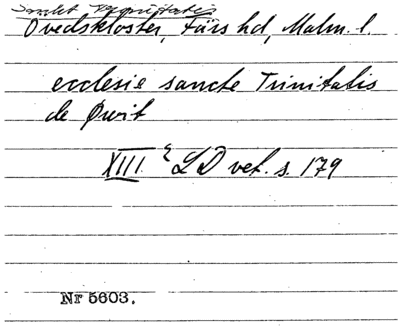 Sankt Trinitatis
Ovedskloster, Färs hd, Malm. l.
ecclesie sancte Trinitatis
de Øwit
XIII. LD vet. s. 179
Nr 5603.